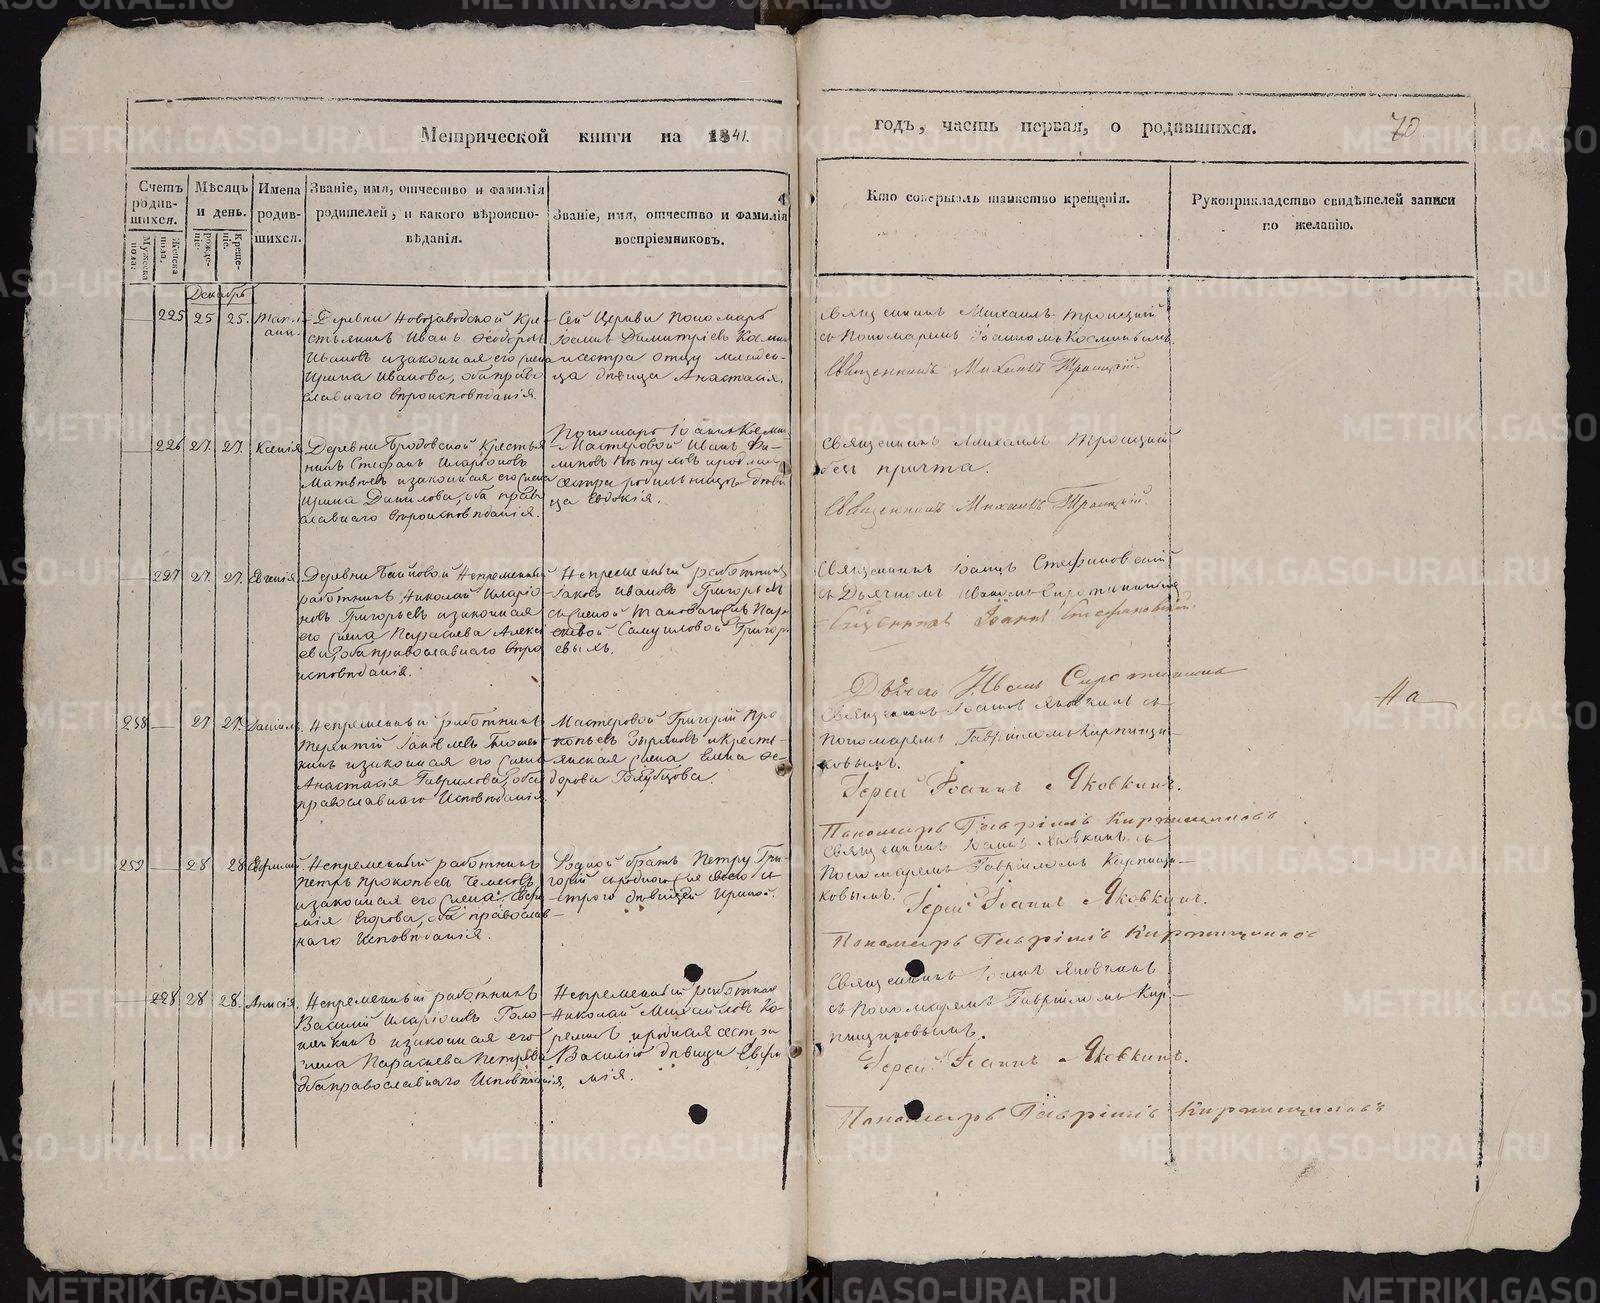 Метрической книги на 1841.
годъ, часть первая, о родившихся.
70
Счетъ родив-шихся.
Мужеска пола.
Женска пола.
Мѣсяцъ и день.
рожде-нія.
Креще-нія.
Имена родив-шихся.
Званіе, имя, отчество и фамилія
родителей, и какого вѣроиспо-
вѣданія.
Званіе, имя, отчество и фамилія
воспріемниковъ.
Кто совершалъ таинство крещенія.
Рукоприкладство свидѣтелей записи
по желанію.
Декабрь
225 25 25.
Деревни Новозаводской Кре-
стьянинъ Иванъ Ѳеодоровъ
Ивановъ и законная его жена
Ирина Иванова, оба право
славнаго вѣроисповѣданія.
Сей Церкви Пономарь
Іоаннъ Димитріевъ Косми
и сестра отцу младен-
ца дѣвица Анастасія.
Священникъ Михаилъ Троицкій
съ Пономаремъ Іоанномъ Косминымъ.
Священникъ Михаилъ Троицкій.
226 27. 27. Ксенія
Деревни Бродовской Крестья
нинъ Стефанъ Иларіоновъ
Матвѣевъ и законная его жена
Ирина Данилова, оба право
славнаго вѣроисповѣданія.
Пономарь Іоаннъ Косми
Мастеровой Иванъ Фи-
липовъ Пѣтуховъ и родная
сестра родильницы дѣви
ца Евдокія.
Священникъ Михаилъ Троицкій
безъ причта.
Священникъ Михаилъ Троицкій.
227 27. 27. Евгенія
Деревни Непременный
работникъ Николай Иларіо
новъ Григорьевъ и законная
его жена Параскева Алексі
ева, оба православнаго вѣро
исповѣданія.
Непременный работникъ
Іаковъ Ивановъ Григорьевъ
съ женой Пара
скевой Самуиловой Григор
евымъ.
Священникъ Іоаннъ Стефановскій
съ Дьячкомъ Иваномъ Сиротининымъ
Священникъ Іоаннъ Стефановскій.
Дьячекъ Иванъ Сиротининъ
На
258 27 27. Даніилъ
Непременный работникъ
Терентій Іаковлевъ
и законная его жена
Анастасія Гаврилова, оба
православнаго Исповѣданія
Мастеровой Григорій Про
копьевъ Зыряновъ и кресть-
янская жена Елена Ѳе-
дорова Голубцова.
Священникъ Іоаннъ Яковкинъ съ
Пономаремъ Гавріиломъ Кирпищи-
ковымъ.
Іерей Іоаннъ Яковкинъ.
Пономарь Гавріилъ Кирпищиковъ
259 28 28
Непременный работникъ
Петръ Прокопьевъ
и законная его жена
мія Егорова, оба православ-
наго Исповѣданія.
Родной братъ Петру Гри-
горій
дѣвицей Ириной.
Священникъ Іоаннъ Яковкинъ съ
Пономаремъ Гавріиломъ Кирпищи-
ковымъ.
Іерей Іоаннъ Яковкинъ.
Пономарь Гавріилъ Кирпищиковъ
228 28 28. Анисія.
Непременный работникъ
Василій Иларіоновъ
и законная его
жена Параскева Петрова
оба православнаго Исповѣданія.
Непременный работникъ
Николай Михайловъ Ко
и родная сестра
Василію дѣвица Евфи
мія.
Священникъ Іоаннъ Яковкинъ
съ Пономаремъ Гавріиломъ Кир-
пищиковымъ.
Іерей Іоаннъ Яковкинъ.
Пономарь Гавріилъ Кирпищиковъ
METRIKI.GASO-URAL.RU